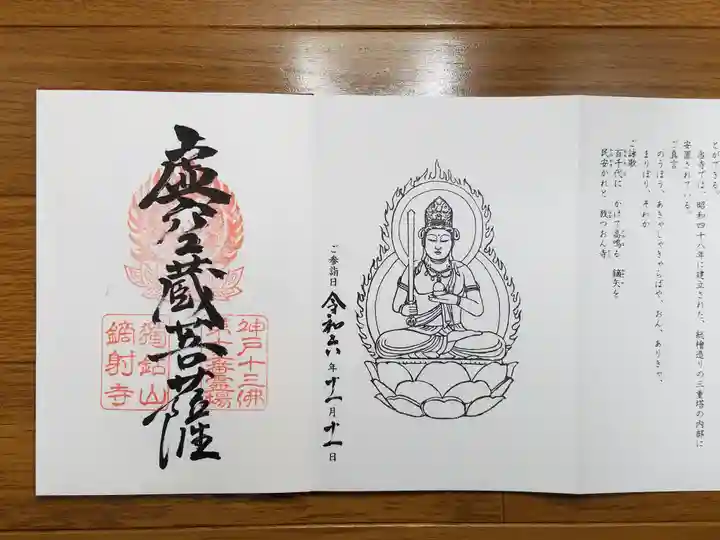 とができる。
当寺では、昭和四十八年に建立された、総檜造りの三重塔の内部に
安置されている。
ご真言
のうぼう、あきゃしゃきゃらばや、おん、ありきゃ、
まりぼり、そわか
ご詠歌
百千代に かけて高鳴る 鏑矢を
民安かれと 放つおん寺
ご参詣日 令和六年十一月十一日
虚空蔵菩薩
神戸十三佛
第十三番霊場
獨鈷山
鏑射寺